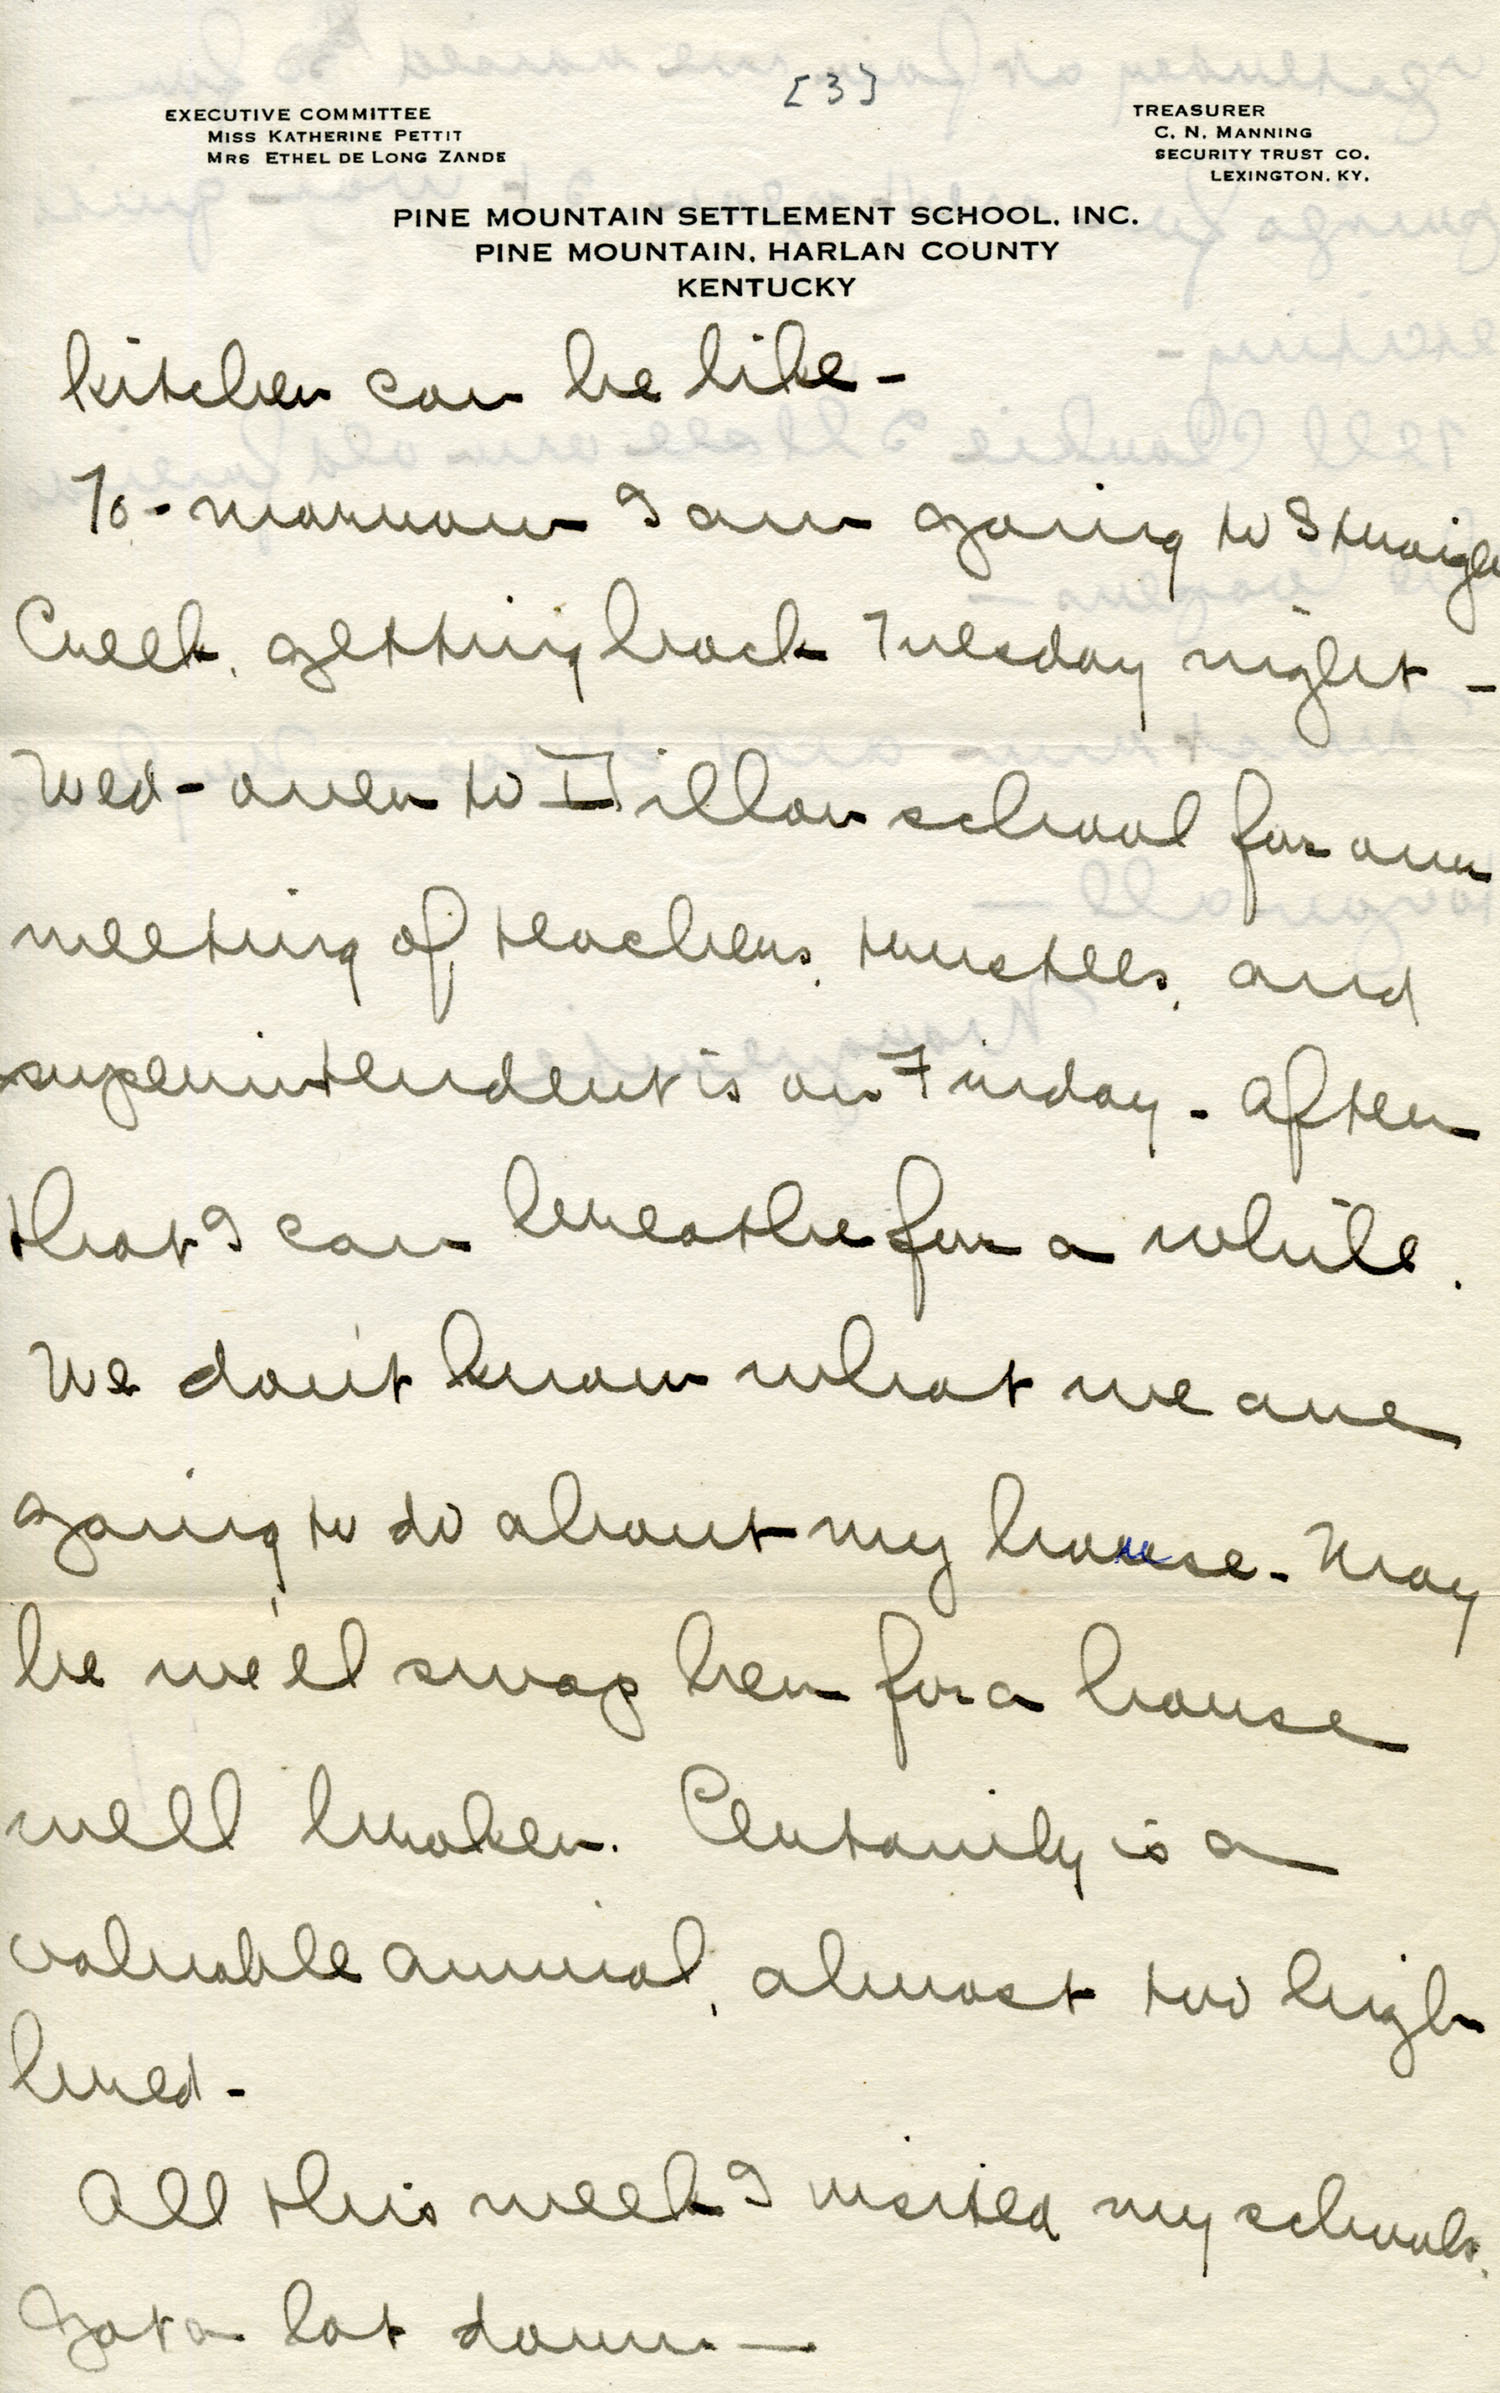 [3]
EXECUTIVE COMMITTEE
MISS KATHERINE PETTIT
MRS ETHEL DE LONG ZANDE
TREASURER
C. N. MANNING
SECURITY TRUST CO.
LEXINGTON, KY.
PINE MOUNTAIN SETTLEMENT SCHOOL, INC.
PINE MOUNTAIN, HARLAN COUNTY
KENTUCKY
kitchen can be like -
To-morrow I am going to Straight
Creek, getting back Tuesday night -
Wed - over to Dillon school for our
meeting of teachers, trustees, and
superintendent is on Friday - After
that I can breathe for a while.
We don't know what we are
going to do about my house - May
be we'll swap her for a house
well broken. Centarily is a
valuable animal, almost too high
bred -
All this week I visited my schools.
Got a lot done —